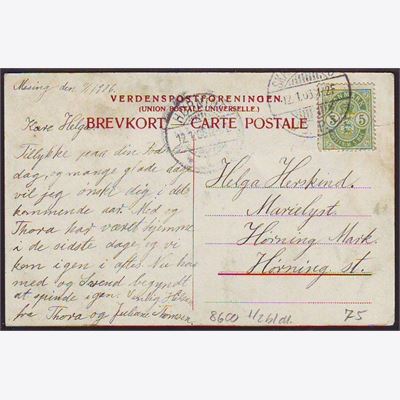 Mising den 9/1 906.
VERDENSPOSTFORENINGEN.
(UNION POSTALE UNIVERSELLE.)
BREVKORT CARTE POSTALE
Kære Helga
Tillykke paa din
dag, og mange glade aar
vil jeg ønske dig i det
kommende aar. Med og
Thora har været hjemme
i de sidste dage og vi
kom igen i aftes. Nu har
med og Svend begyndt
at spinde igen. Venlig Hilsen
fra Thora og Juliane Thomsen.
Helga Herskind.
Marielyst.
Hørning Mark.
Hørning st.
5 5
8600 1/2 bl. dl. 75